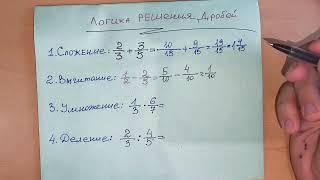 Логика решения Дробей
1. Сложение: 2/3 + 3/5 = 10/15 + 9/15 = 19/15 = 1 4/15
2. Вычитание: 1/2 - 2/5 = 5/10 - 4/10 = 1/10
3. Умножение: 1/3 · 6/7 =
4. Деление: 2/3 : 4/5 =